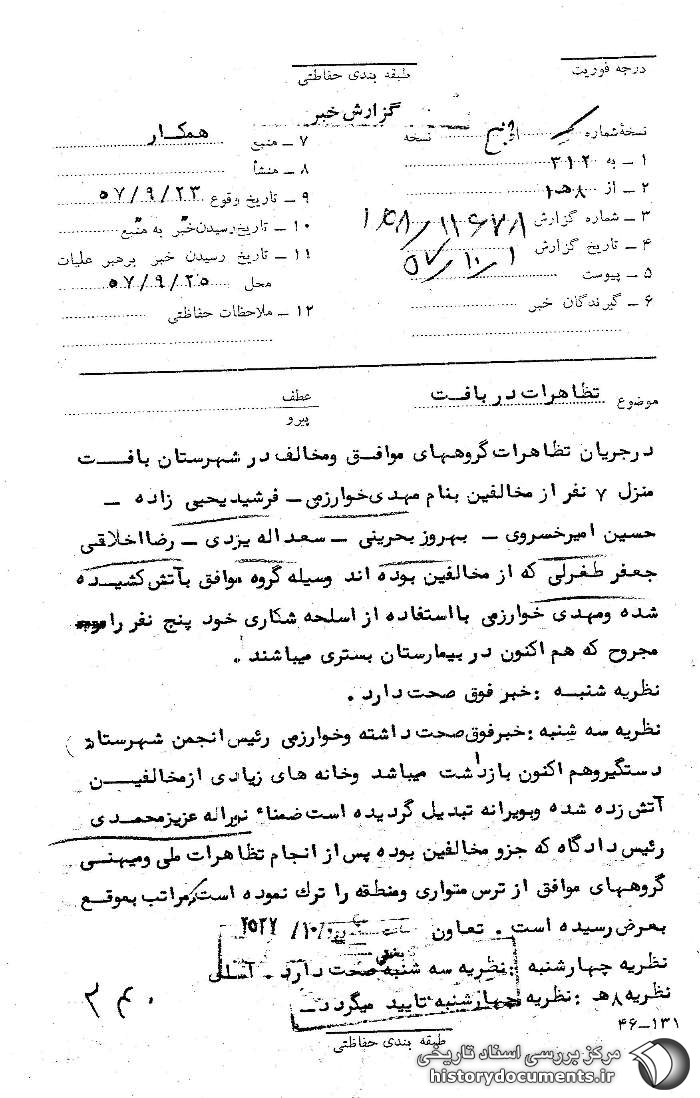 درجه فوریت
طبقه بندی حفاظتی
گزارش خبر
نسخهٔ شماره از پنج نسخه
۱ ـ به ۳۱۲
۲ ـ از ۸هـ۱
۳ ـ شماره گزارش ۱۱۶۷۸/۸هـ۱
۴ ـ تاریخ گزارش ۵۷/۱۰/۱
۵ ـ پیوست
۶ ـ گیرندگان خبر
۷ ـ منبع همکار
۸ ـ منشأ
۹ ـ تاریخ وقوع ۵۷/۹/۲۳
۱۰ ـ تاریخ رسیدن خبر به منبع
۱۱ ـ تاریخ رسیدن خبر برهبر عملیات
محل ۵۷/۹/۲۵
۱۲ ـ ملاحظات حفاظتی
موضوع تظاهرات در بافت
عطف
پیرو
درجریان تظاهرات گروههای موافق ومخالف در شهرستان بافت
منزل ۷ نفر از مخالفین بنام مهدی خوارزمی ـ فرشید یحیی زاده ـ
حسین امیرخسروی ـ بهروز بحرینی ـ سعداله یزدی ـ رضا اخلاقی
جعفر طغرلی که از مخالفین بوده اند وسیله گروه موافق بآتش کشیده
شده ومهدی خوارزمی با استفاده از اسلحه شکاری خود پنج نفر را
مجروح که هم اکنون در بیمارستان بستری میباشند .
نظریه شنبه : خبر فوق صحت دارد .
نظریه سه شنبه : خبرفوق صحت داشته وخوارزمی رئیس انجمن شهرستان
دستگیروهم اکنون بازداشت میباشد وخانه های زیادی ازمخالفین
آتش زده شده وبویرانه تبدیل گردیده است ضمناً نوراله عزیزمحمدی
رئیس دادگاه که جزو مخالفین بوده پس از انجام تظاهرات ملی ومیهنی
گروههای موافق از ترس متواری ومنطقه را ترک نموده است مراتب بموقع
بعرض رسیده است . تعاون
نظریه چهارشنبه : نظریه سه شنبه صحت دارد .
نظریه ۸هـ : نظریه چهارشنبه تایید میگردد ـ
۴۶-۱۳۱
طبقه بندی حفاظتی
مرکز بررسی اسناد تاریخی
historydocuments.ir